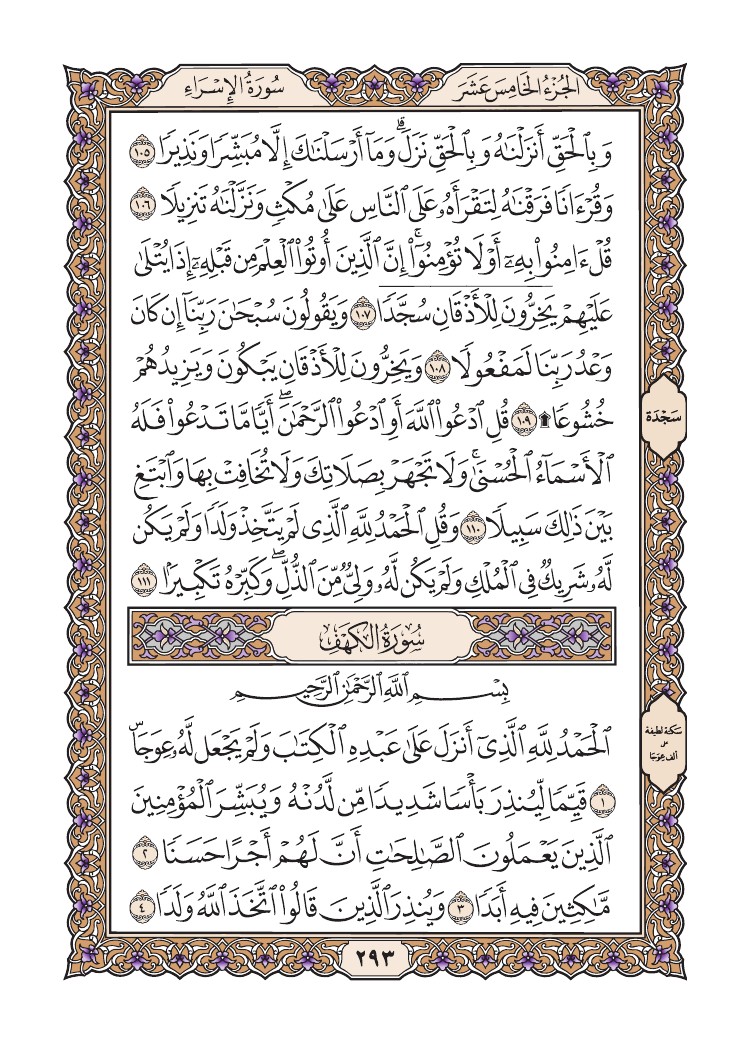 الجُزْءُ الخَامِسَ عَشَرَ
سُورَةُ الإِسْرَاءِ
وَبِٱلْحَقِّ أَنزَلْنَٰهُ وَبِٱلْحَقِّ نَزَلَ ۗ وَمَآ أَرْسَلْنَٰكَ إِلَّا مُبَشِّرًا وَنَذِيرًا ١٠٥
وَقُرْءَانًا فَرَقْنَٰهُ لِتَقْرَأَهُۥ عَلَى ٱلنَّاسِ عَلَىٰ مُكْثٍ وَنَزَّلْنَٰهُ تَنزِيلًا ١٠٦
قُلْ ءَامِنُوا۟ بِهِۦٓ أَوْ لَا تُؤْمِنُوٓا۟ ۚ إِنَّ ٱلَّذِينَ أُوتُوا۟ ٱلْعِلْمَ مِن قَبْلِهِۦٓ إِذَا يُتْلَىٰ
عَلَيْهِمْ يَخِرُّونَ لِلْأَذْقَانِ سُجَّدًا ١٠٧ وَيَقُولُونَ سُبْحَٰنَ رَبِّنَآ إِن كَانَ
وَعْدُ رَبِّنَا لَمَفْعُولًا ١٠٨ وَيَخِرُّونَ لِلْأَذْقَانِ يَبْكُونَ وَيَزِيدُهُمْ
خُشُوعًا ۩ ١٠٩ قُلِ ٱدْعُوا۟ ٱللَّهَ أَوِ ٱدْعُوا۟ ٱلرَّحْمَٰنَ ۖ أَيًّا مَّا تَدْعُوا۟ فَلَهُ
سَجْدَة
ٱلْأَسْمَآءُ ٱلْحُسْنَىٰ ۚ وَلَا تَجْهَرْ بِصَلَاتِكَ وَلَا تُخَافِتْ بِهَا وَٱبْتَغِ
بَيْنَ ذَٰلِكَ سَبِيلًا ١١٠ وَقُلِ ٱلْحَمْدُ لِلَّهِ ٱلَّذِى لَمْ يَتَّخِذْ وَلَدًا وَلَمْ يَكُن
لَّهُۥ شَرِيكٌ فِى ٱلْمُلْكِ وَلَمْ يَكُن لَّهُۥ وَلِىٌّ مِّنَ ٱلذُّلِّ ۖ وَكَبِّرْهُ تَكْبِيرًۢا ١١١
سُورَةُ الكَهْفِ
بِسْمِ ٱللَّهِ ٱلرَّحْمَٰنِ ٱلرَّحِيمِ
ٱلْحَمْدُ لِلَّهِ ٱلَّذِىٓ أَنزَلَ عَلَىٰ عَبْدِهِ ٱلْكِتَٰبَ وَلَمْ يَجْعَل لَّهُۥ عِوَجَاۜ
سكتة لطيفة
على
ألف عِوَجَا
١ قَيِّمًا لِّيُنذِرَ بَأْسًا شَدِيدًا مِّن لَّدُنْهُ وَيُبَشِّرَ ٱلْمُؤْمِنِينَ
ٱلَّذِينَ يَعْمَلُونَ ٱلصَّٰلِحَٰتِ أَنَّ لَهُمْ أَجْرًا حَسَنًا ٢
مَّٰكِثِينَ فِيهِ أَبَدًا ٣ وَيُنذِرَ ٱلَّذِينَ قَالُوا۟ ٱتَّخَذَ ٱللَّهُ وَلَدًا ٤
٢٩٣